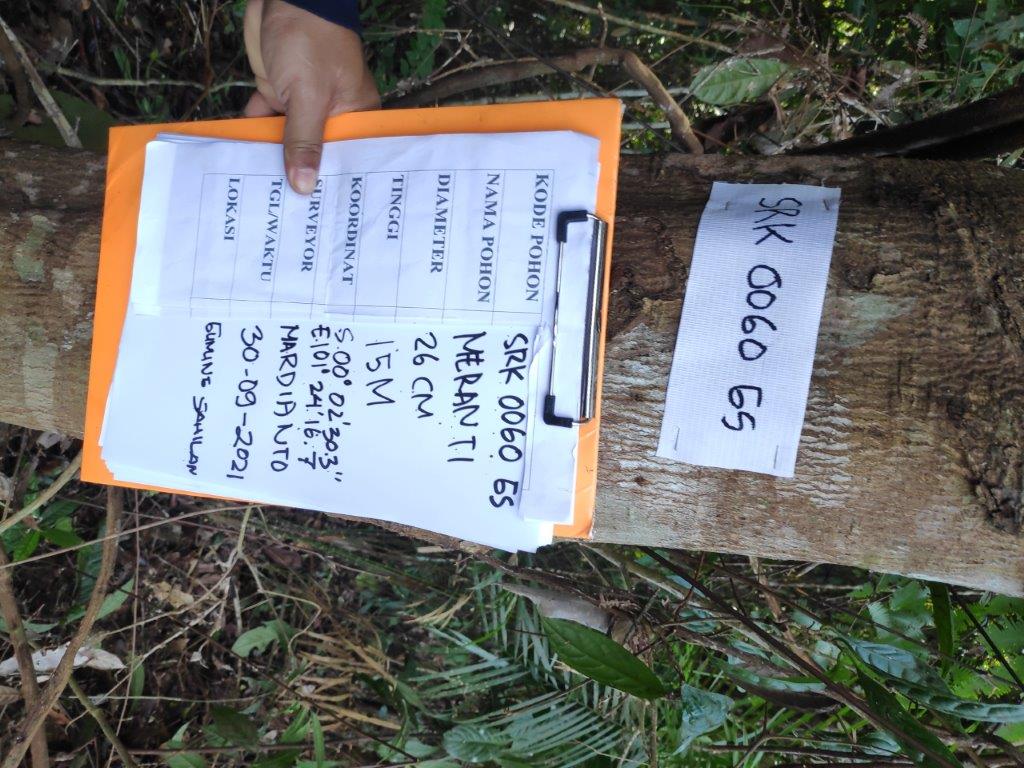 SRK 0060 GS
KODE POHON SRK 0060 GS
NAMA POHON MERANTI
DIAMETER 26 CM
TINGGI 15 M
KOORDINAT S.00° 02'30.3"
E.101° 24.'16.7
SURVEYOR MARDIANTO
TGL/WAKTU 30-09-2021
LOKASI SAHILAN